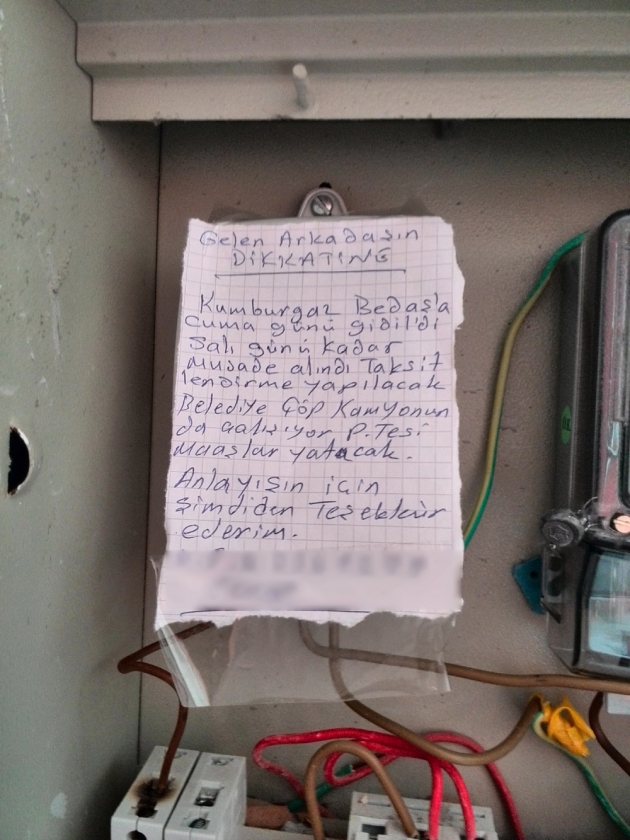 Gelen Arkadaşın
DİKKATİNE
Kumburgaz Bedaş'a
Cuma günü gidildi
Salı günü kadar
Musade alındı Taksit
lendirme yapılacak
Belediye Çöp Kamyonun
da çalışıyor P.Tesi
maaşlar yatacak.
Anlayışın için
şimdiden Teşekkür
ederim.